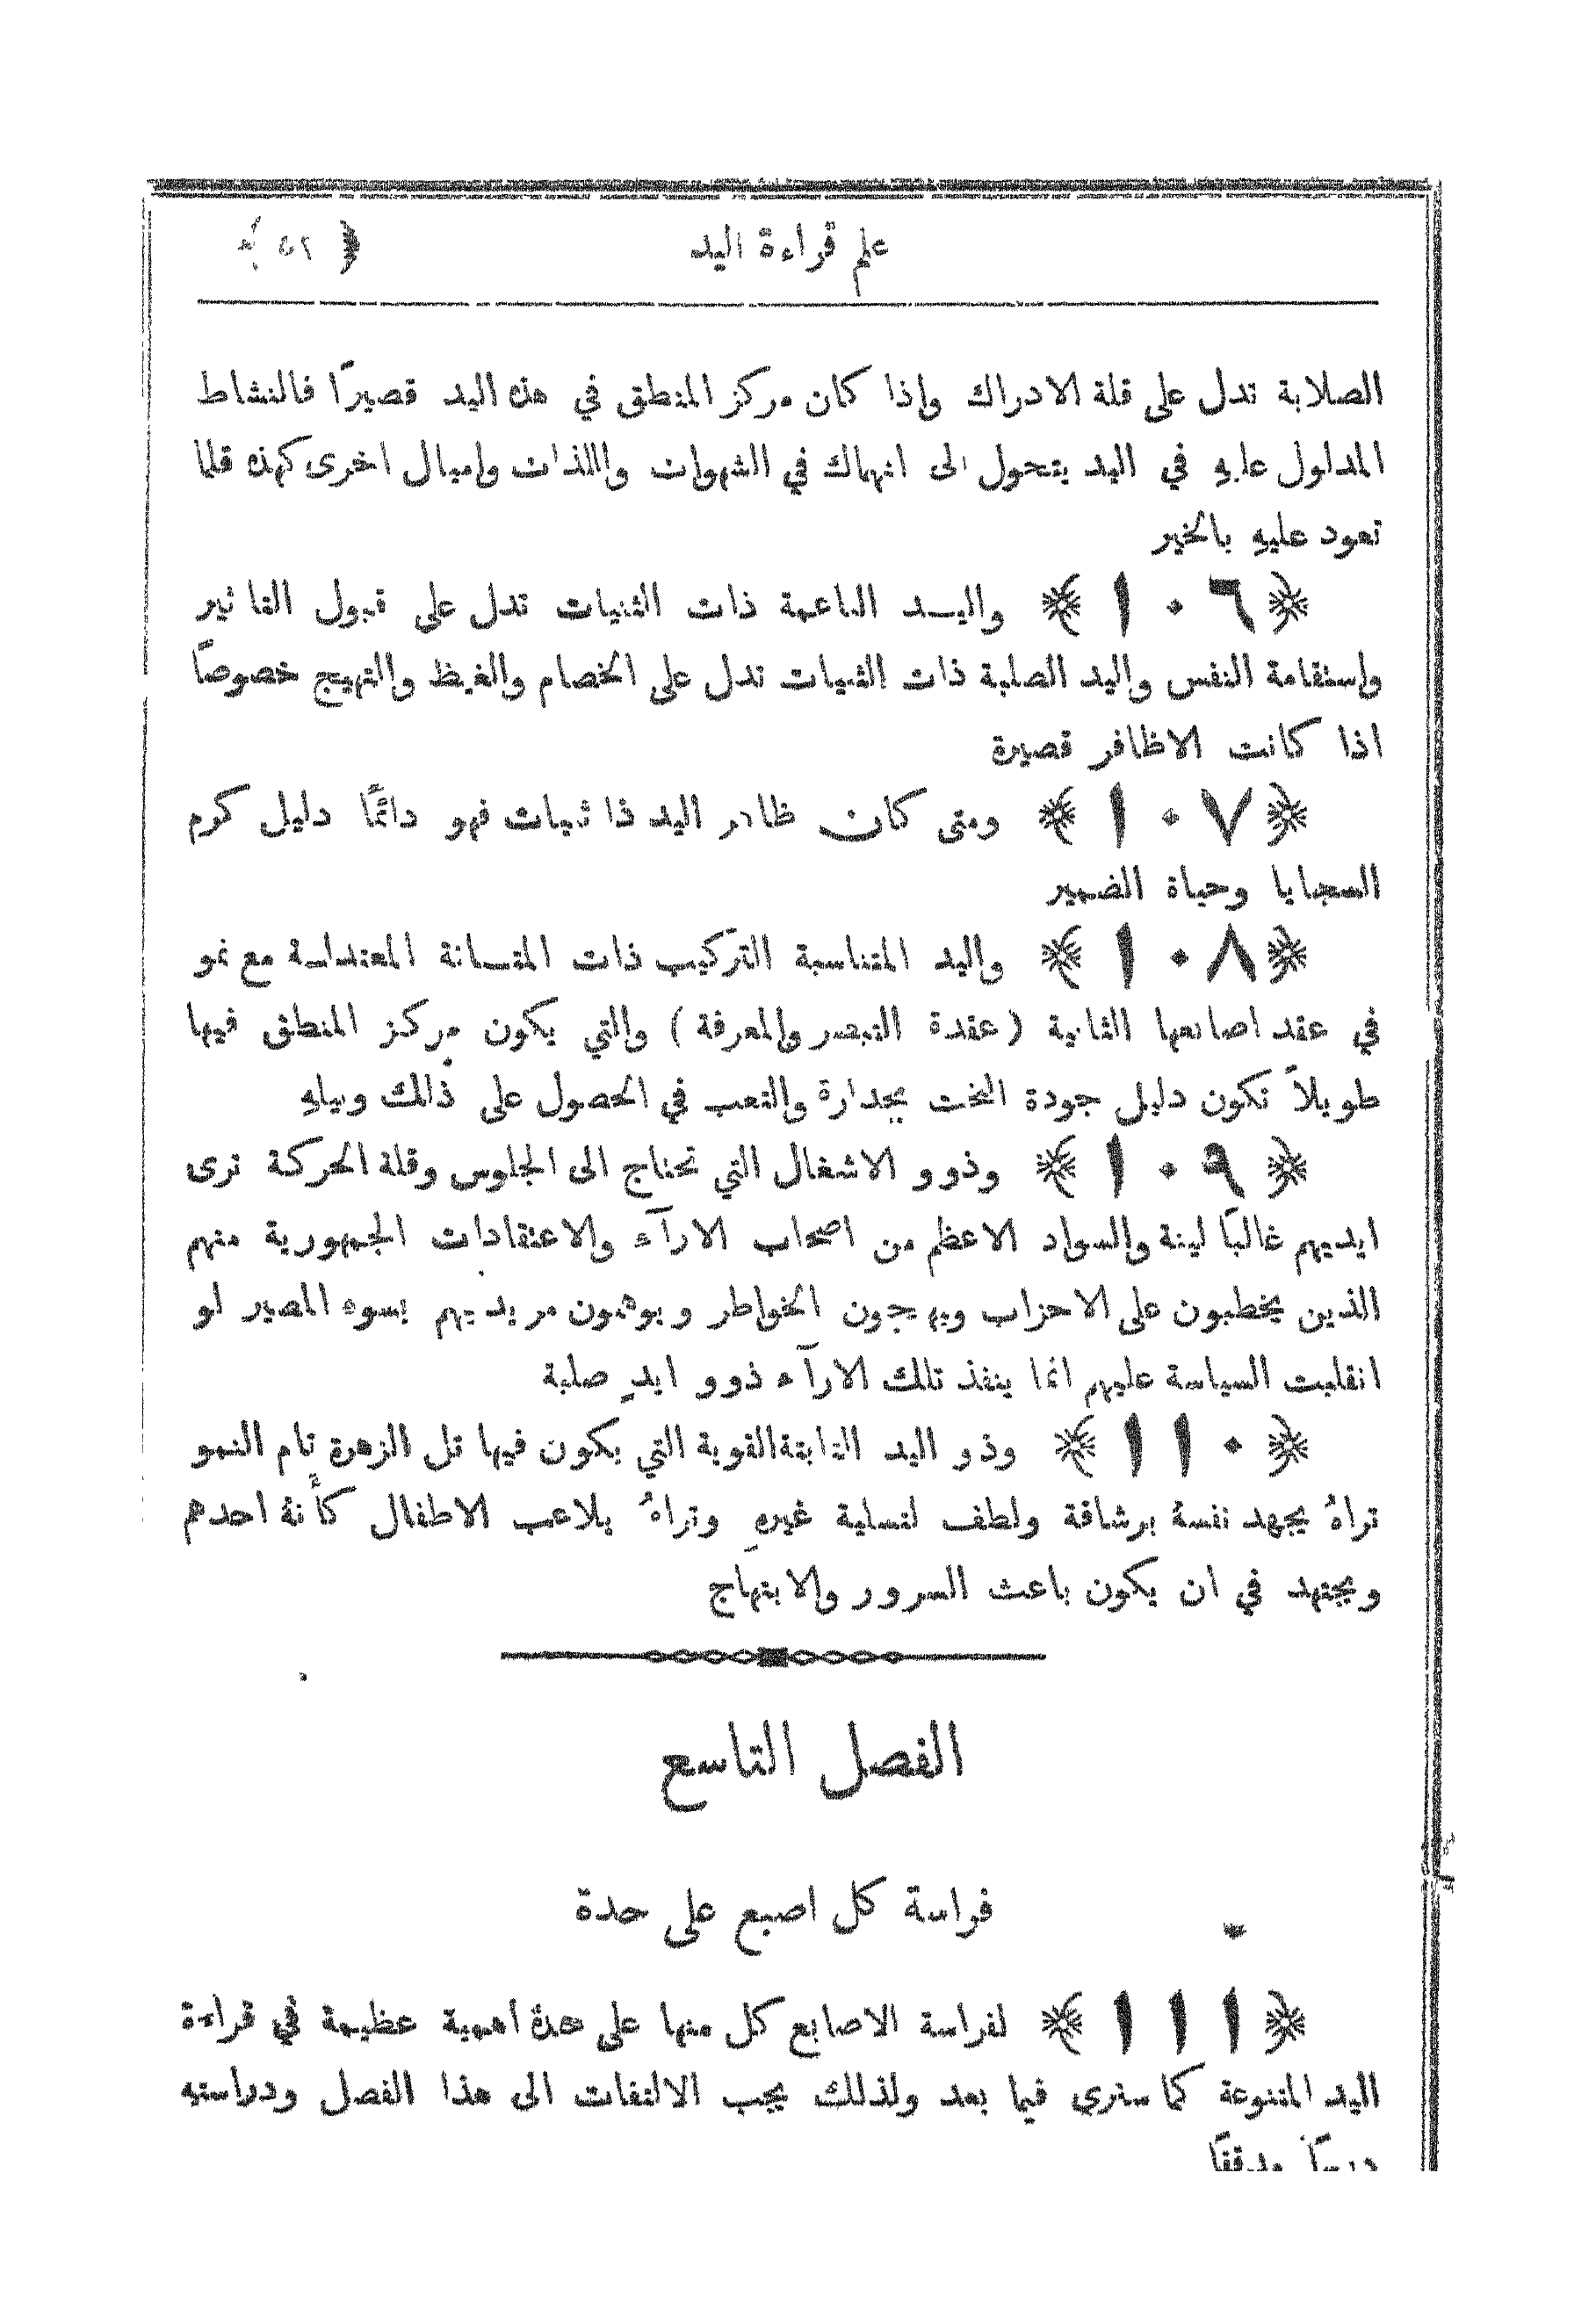 علم قراءة اليد ﴿ ٥١ ﴾
الصلابة تدل على قلة الادراك واذا كان مركز المنطق في هذه اليد قصيرًا فالنشاط
المدلول عليهِ في اليد يتحول الى انهماك في الشهوات واللذات واميال اخرى كهذه قلما
تعود عليهِ بالخير
﴿ ١٠٦ ﴾ واليـد الناعمة ذات الثنيات تدل على قبول التاثير
واستقامة النفس واليد الصلبة ذات الثنيات تدل على الخصام والغيظ والتهيج خصوصًا
اذا كانت الاظافر قصيرة
﴿ ١٠٧ ﴾ ومتى كان ظاهر اليد ذا ثنيات فهو دائمًا دليل كرم
السجايا وحياة الضمير
﴿ ١٠٨ ﴾ واليد المتناسبة التركيب ذات المتـانة المعتدلة مع نمو
في عقد اصابعها الثانية (عقدة التبصر والمعرفة) والتي يكون مركز المنطق فيها
طويلاً تكون دليل جودة البخت بجدارة والتعب في الحصول على ذلك ونيلهِ
﴿ ١٠٩ ﴾ وذوو الاشغال التي تحتاج الى الجلوس وقلة الحركة ترى
ايديهم غالبًا لينة والسواد الاعظم من اصحاب الارآء والاعتقادات الجمهورية منهم
الذين يخطبون على الاحزاب ويهيجون الخواطر ويوهمون مريديهم بسوء المصير لو
انقلبت السياسة عليهم انما ينفذ تلك الارآء ذوو ايدٍ صلبة
﴿ ١١٠ ﴾ وذو اليد الثابتة القوية التي يكون فيها تل الزهرة تام النمو
تراهُ يجهد نفسهُ برشاقة ولطف لتسلية غيرهِ وتراهُ يلاعب الاطفال كأنهُ احدهم
ويجتهد في ان يكون باعث السرور والابتهاج
الفصل التاسع
فراسة كل اصبع على حدة
﴿ ١١١ ﴾ لفراسة الاصابع كل منها على حدة أهمية عظيمة في قراءة
اليد المتنوعة كما سنرى فيما بعد ولذلك يجب الالتفات الى هذا الفصل ودراستهِ